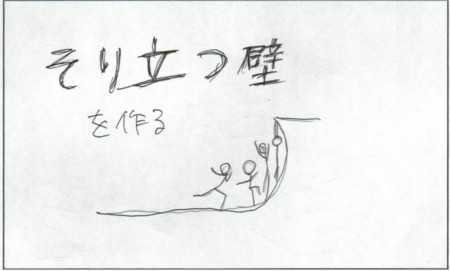 そり立つ壁
を作る